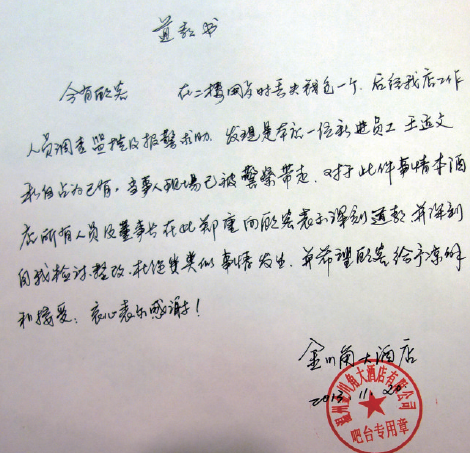 道歉书
今有顾客 在二楼网占时丢失钱包一个. 后经我店工作
人员调查监控及报警求助, 发现是本店一位新进员工 王运文
私自占为已有。当事人现场已被警察带走. 对于此件事情本酒
店所有人员及董事长在此郑重向顾客表示深刻道歉 并深刻
自我检讨.整改. 杜绝类似事情发生. 并希望顾客给予凉解
和接受. 衷心表示感谢!
金川角大酒店
2013.11.20
川角大酒店有限公司
吧台专用章